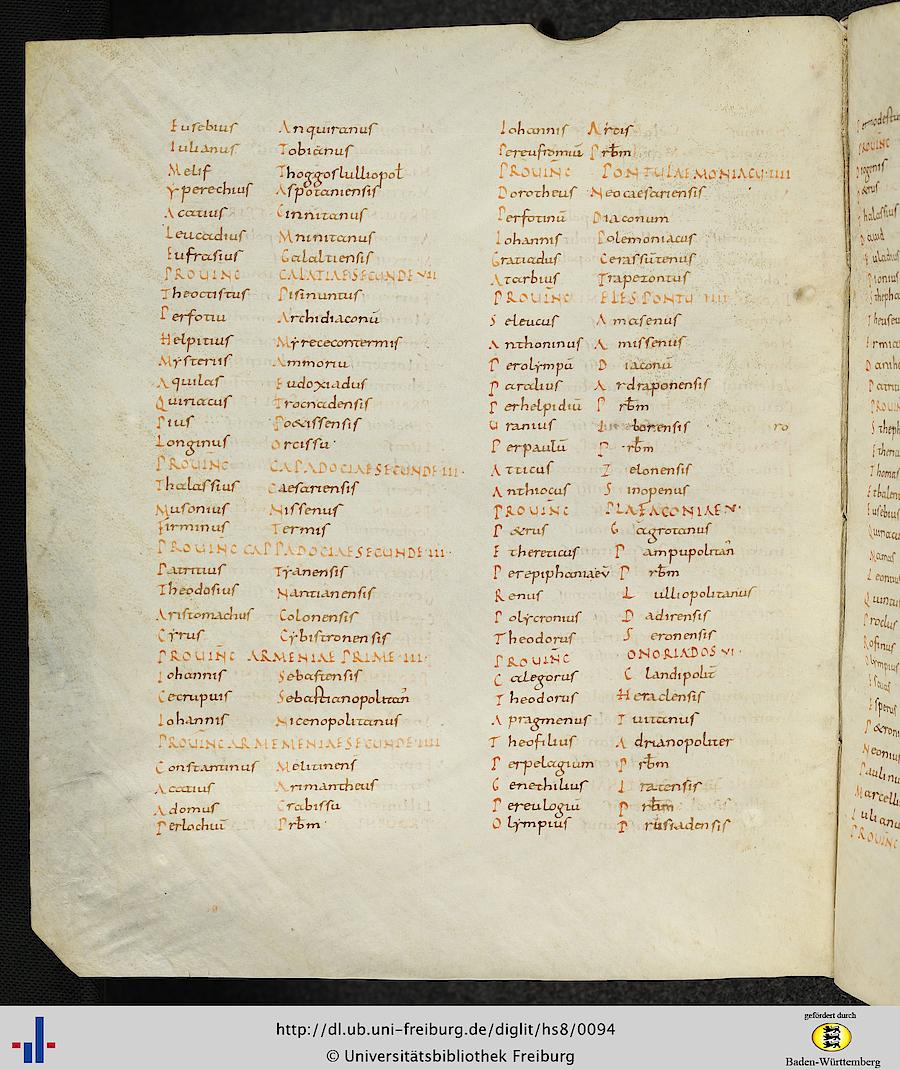 Eusebius Anquiranus
Iulianus Tobianus
Melif Thoggoslulliopol̄
Yperechius Aspotaniensis
Acatius Cinnitanus
Leucadius Mninitanus
Eufrasius Galaltiensis
PROUINC GALATIAE SECUNDE VII
Theoctistus Pisinuntus
Perfotiu Archidiaconū
Helpitius Myrececontermis
Mysterius Ammoriu
Aquilas Eudoxiadus
Quiriacus Trocnadensis
Pius Poetissensis
Longinus Orcissu
PROUINC CAPADOCIAE SECUNDE III
Thalassius Caesariensis
Musonius Nissenus
Firminus Termis
PROUINC CAPPADOCIAE SECUNDE III
Patritius Tyanensis
Theodosius Nantianensis
Aristomachus Colonensis
Cyrus Cybistronensis
PROUINC ARMENIAE PRIME III
Iohannis Sebastensis
Cecrupuis Sebastianopolitan̄
Iohannis Nicenopolitanus
PROUINC ARMEMENIAE SECUNDE IIII
Constantinus Melitinens̄
Acatius Arimantheus
Adomus Crabissu
Perlochiū Prb̄m
Iohannis Arcis
Pereufromiū Prb̄m
PROUINC PONTULAEMONIACU IIII
Dorotheus Neocaesariensis
Perfotinū Diaconum
Iohannis Polemoniacus
Gratiadus Cerassutenus
Atarbius Trapezontus
PROUINC ELESPONTU IIII
Seleucus Amasenus
Anthoninus Amissenus
Perolympū Diaconū
Paralius Ardraponensis
Perhelpidiū Prb̄m
Uranius Iborensis
Perpaulū Prb̄m
Atticus Zelonensis
Anthiocus Sinopenus
PROUINC PLAFAGONIAE V
Petrus Gagrotanus
Ethereticus Pampupolitan̄
Perepiphaniaev̄ Prb̄m
Renus Lulliopolitanus
Polycronius Dadirensis
Theodorus Seronensis
PROUINC ONORIADOS VI
Calegorus Clandipolit̄
Theodorus Heraclensis
Apragmenus Tuitanus
Theofilius Adrianopoliter
Perpelagium Prb̄m
Genethilius Iratensis
Pereulogiū Prb̄m
Olympius Prusiadensis
http://dl.ub.uni-freiburg.de/diglit/hs8/0094
© Universitätsbibliothek Freiburg
gefördert durch
Baden-Württemberg